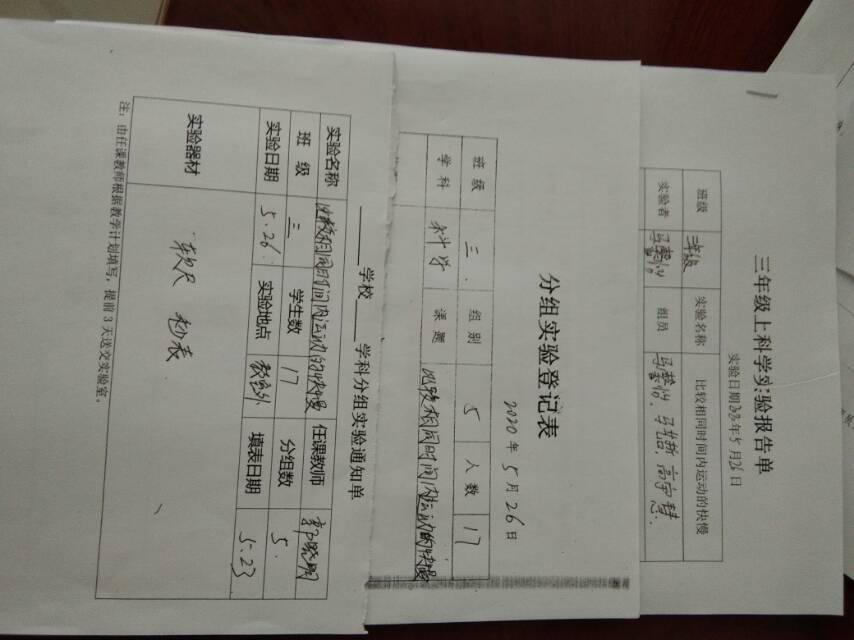 三年级上科学实验报告单
实验日期2020年5月26日
班级 三年级 实验名称 比较相同时间内运动的快慢
实验者 组员
分组实验登记表
2020年5月26日
班级 三 组别 5 人数 17
学科 科学 课题 比较相同时间内运动的快慢
______学校____学科分组实验通知单
实验名称 比较相同时间内运动的快慢 任课教师
班级 三 学生数 17 分组数 5
实验日期 5.26 实验地点 教室外 填表日期 5.23
实验器材 软尺 秒表
注：由任课教师根据教学计划填写，提前3天送交实验室。